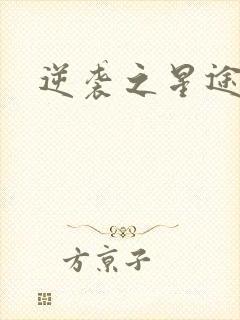 逆袭之星途
方京子